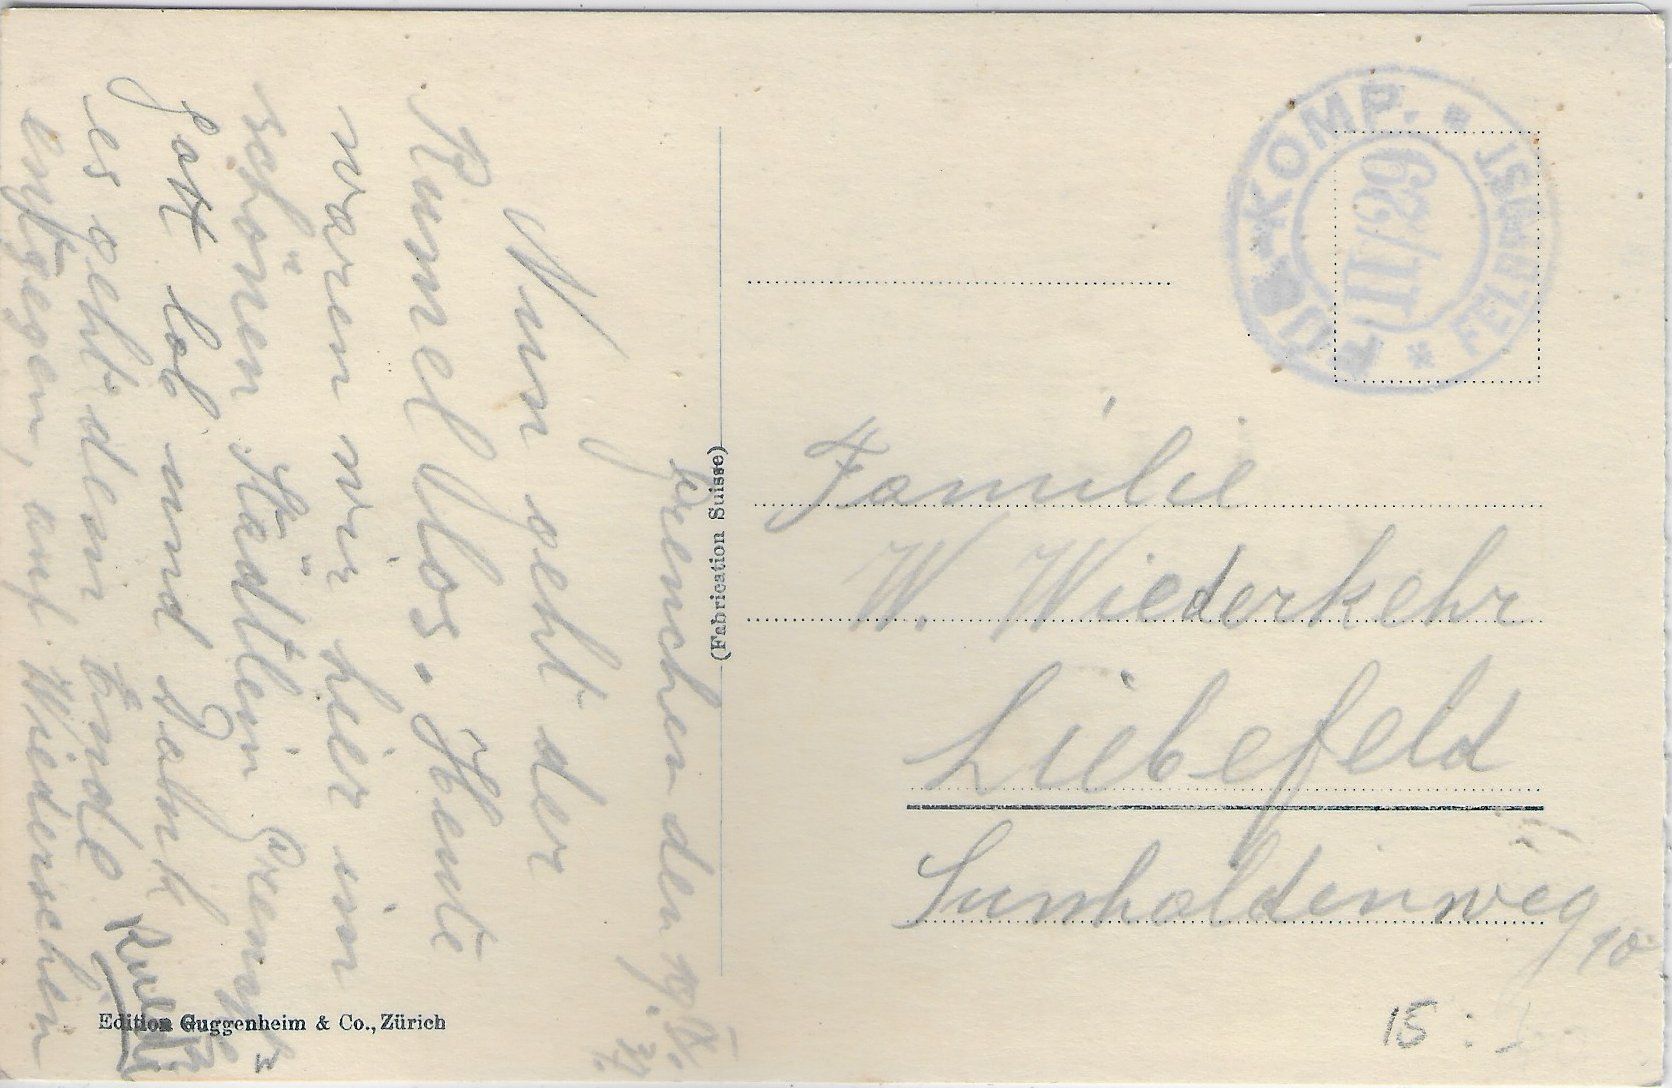 Grenchen den 19. IX. 37.
Nun geht der
Rummel los. Heute
waren wir hier im
schönen Städtlein
Gott lob und Dank
es geht dem Ende
entgegen, auf Wiedersehen
Ruedi
(Fabrication Suisse)
Edition Guggenheim & Co., Zürich
KOMP. * FELDPOST *
II/26
Familie
W. Wiederkehr
Liebefeld
Sunnhaldenweg 10
15